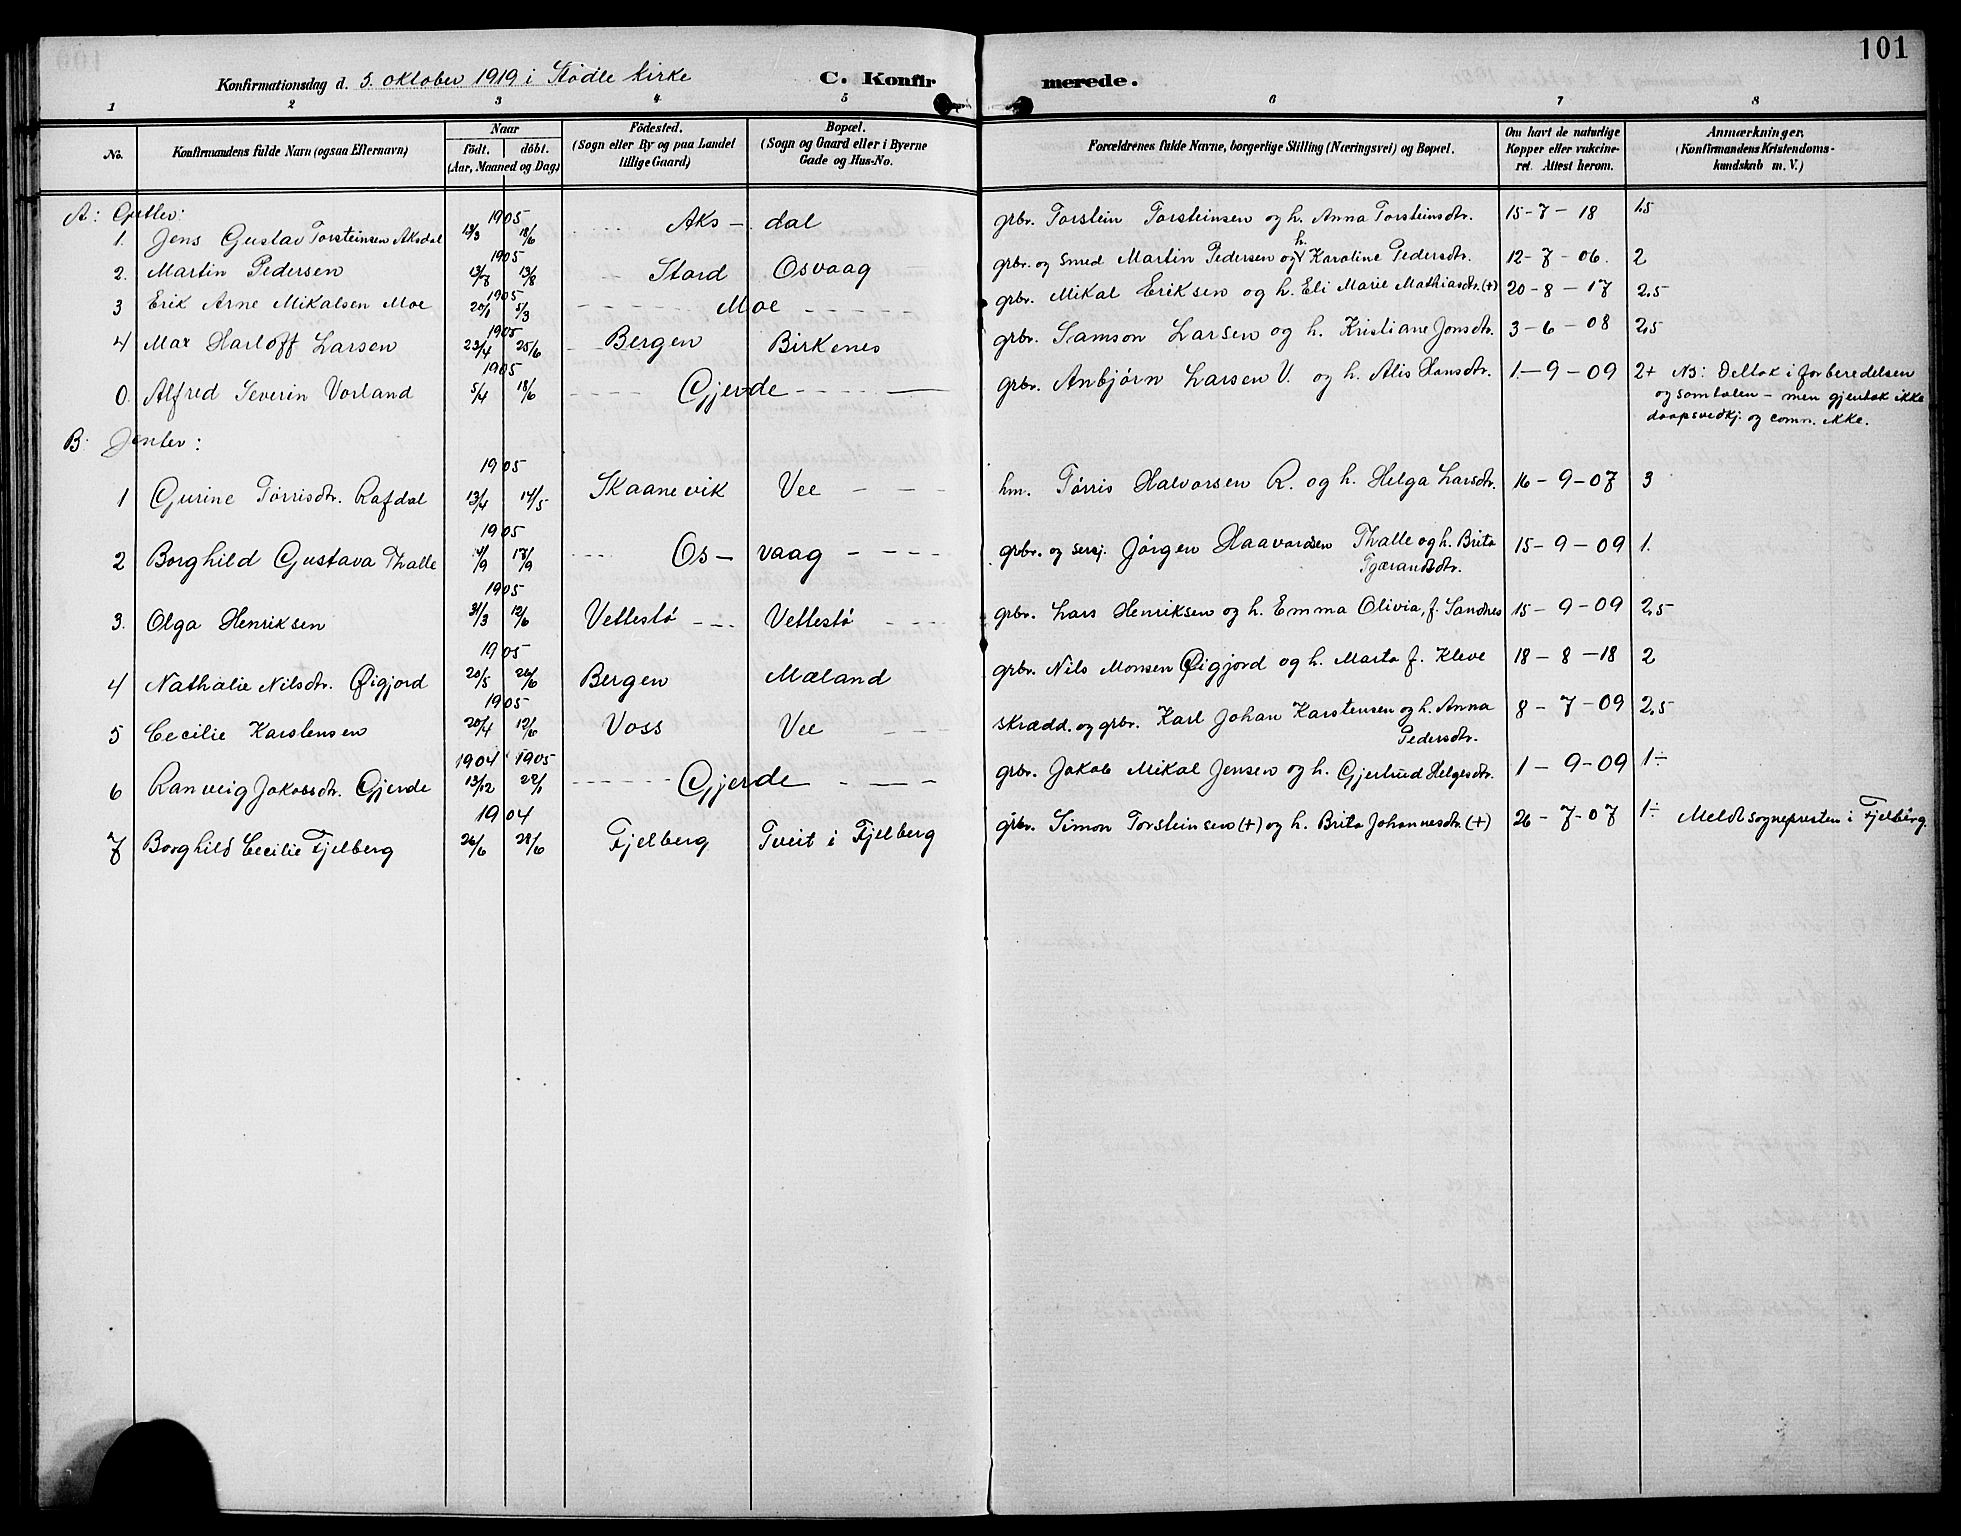 101
Konfirmationsdag d. 5. oktober 1919 i Stødle kirke C. Konfirmerede.
1 2 3 4 5 6 7 8
No. Konfirmandens fulde Navn (ogsaa Efternavn) Naar födt. döbt. (Aar, Maaned og Dag) Födested. (Sogn eller By og paa Landet tillige Gaard) Bopæl. (Sogn og Gaard eller i Byerne Gade og Hus-No. Forældrenes fulde Navne, borgerlige Stilling (Næringsvei) og Bopæl. Om havt de naturlige Kopper eller vakcineret. Attest herom. Anmærkninger. (Konfirmandens Kristendomskundskab m. V.)
A: Gutter:
1905
1. Jens Gustav Torsteinsen Aksdal 13/3 18/6 Aks - dal grbr. Torstein Torsteinsen og h. Anna Torsteinsdtr. 15-7-18 1,5
1905
2. Martin Pedersen 13/7 13/8 Stord Osvaag grbr. og smed Martin Pedersen og h. Karoline Pedersdtr. 12-7-06. 2
1905
3 Erik Arne Mikalsen Moe 20/1 5/3 Moe grbr. Mikal Eriksen og h. Eli Marie Mathiasdtr. (+) 20-8-17 2,5
1905
4 Max Harloff Larsen 23/4 25/6 Bergen Birkenes grbr. Samson Larsen og h. Kristiane Jonsdtr. 3-6-08 2,5
1905
0. Alfred Severin Vorland 5/4 18/6 Gjerde grbr. Anbjørn Larsen V. og h. Alis Hansdtr. 1-9-09 2+ NB: Deltok i forberedelsen
og samtalen - men gjentok ikke
daapsvedkj. og comn. ikke.
B: Jenter:
1905
1 Gurine Tørrisdtr. Rafdal 13/4 14/5 Skaanevik Vee hm. Tørris Halvorsen R. og h. Helga Larsdtr. 16-9-07 3
1905
2 Borghild Gustava Thalle 17/9 Os - vaag grbr. og sersj. Jørgen Haavardsen Thalle og h. Brita 15-9-09 1.
Tjærandsdtr.
1905
3. Olga Henriksen 31/3 12/6 Vettestø Vettestø grbr. Lars Henriksen og h. Emma Olivia, f. Sandnes 15-9-09 2,5
1905
4 Nathalie Nilsdtr. Øigjord 20/5 26/6 Bergen Mæland grbr. Nils Monsen Øigjord og h. Marta f. Kleve 18-8-18 2
1905
5 Cecilie Karstensen 20/4 12/6 Voss Vee skrædd. og grbr. Karl Johan Karstensen og h. Anna 8-7-09 2,5
Pedersdtr.
1904 1905
6 Ranveig Jakobsdtr. Gjerde 13/12 22/1 Gjerde grbr. Jakob Mikal Jensen og h. Gjertrud Helgesdtr. 1-9-09 1÷
1904
7 Borghild Cecilie Fjelberg 26/6 28/6 Fjelberg Tveit i Fjelberg grbr. Simon Torsteinsen (+) og h. Brita Johannesdtr. (+) 26-7-07 1÷ Meldt sognepresten i Fjelberg.